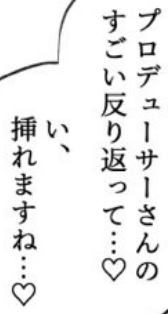 プロデューサーさんの
すごい反り返って…♡
い、
挿れますね…♡